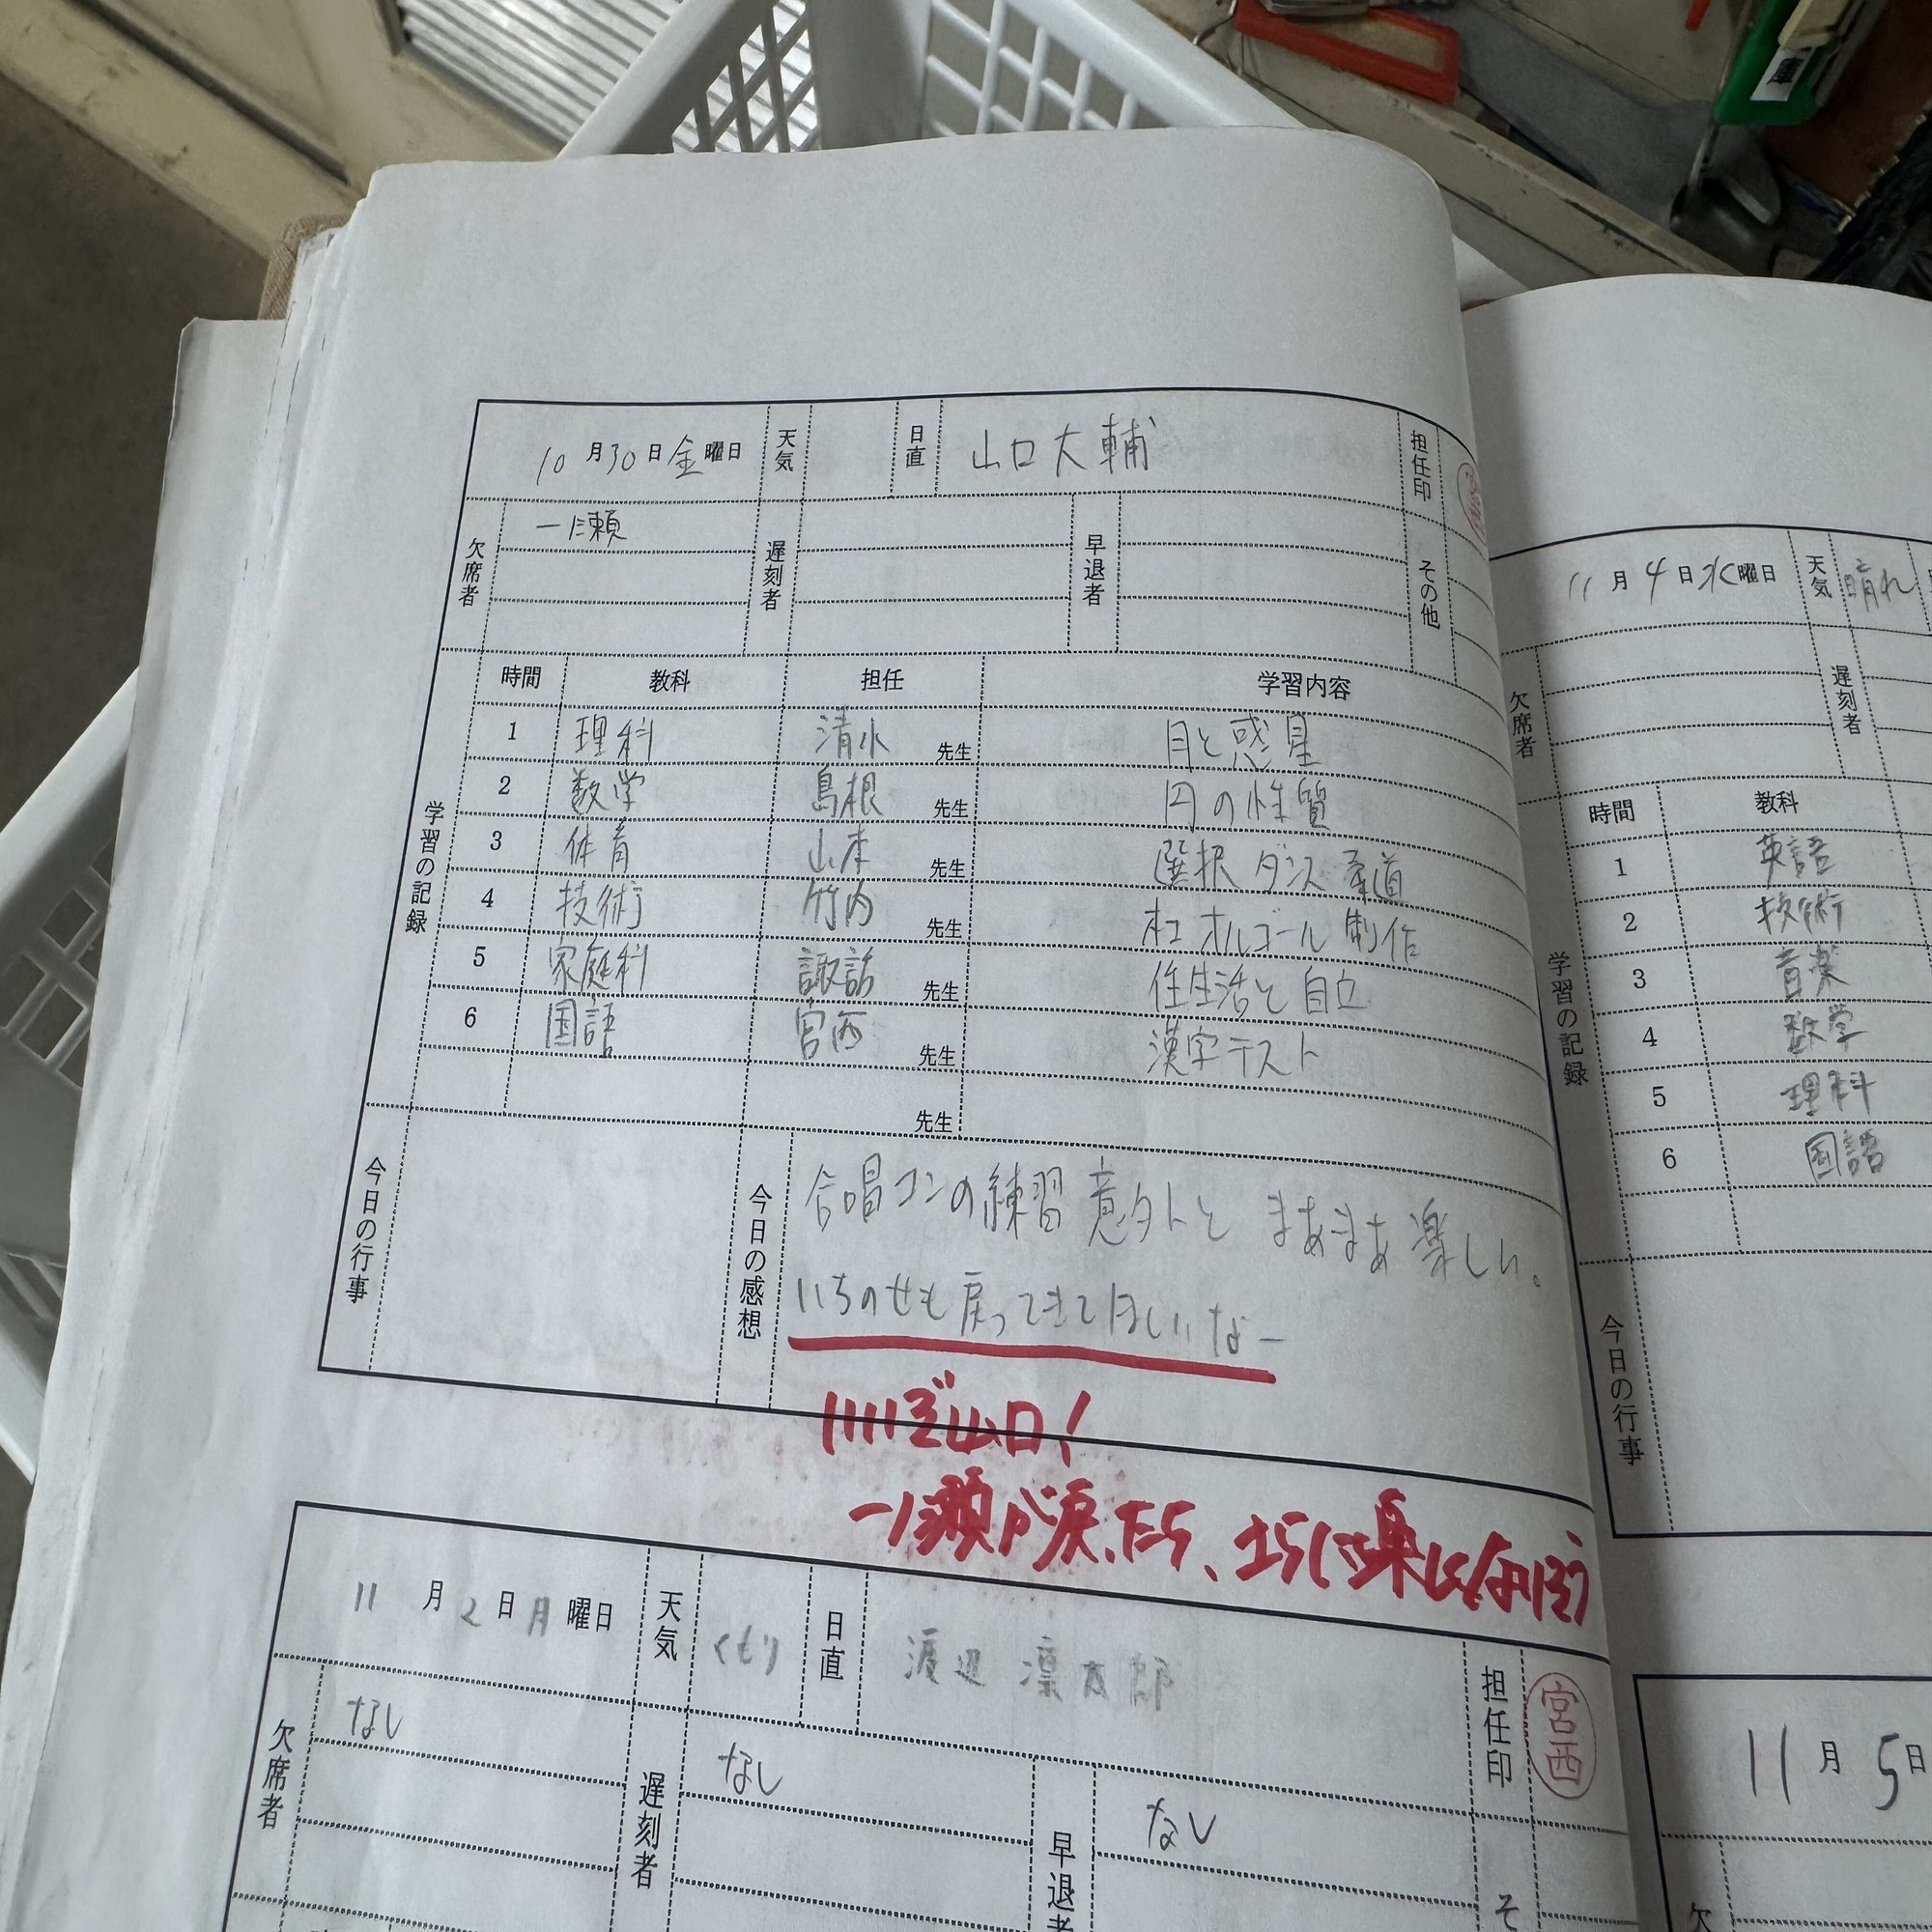 庫
10月30日金曜日 天気 日直 山口大輔 担任印
欠席者 一瀬 遅刻者 早退者 その他
学習の記録
時間 教科 担任 学習内容
1 理科 清水 先生 月と惑星
2 数学 島根 先生 円の性質
3 体育 山本 先生 選択 ダンス 柔道
4 技術 竹内 先生 木工 オルゴール 制作
5 家庭科 諏訪 先生 住生活と自立
6 国語 宮西 先生 漢字テスト
先生
今日の行事
今日の感想
合唱コンの練習意外と まあまあ楽しい。
いちのせも戻ってきてほしいなー
いいぞ山口!
一瀬が戻ったら、さらに楽しくなりそう
11月2日月曜日 天気 くもり 日直 渡辺 凛太郎 担任印 宮西
欠席者 なし 遅刻者 なし 早退者 なし そ
11月4日水曜日 天気 晴れ
欠席者 遅刻者
学習の記録
時間 教科
1 英語
2 技術
3 音楽
4 数学
5 理科
6 国語
今日の行事
11月5日
欠